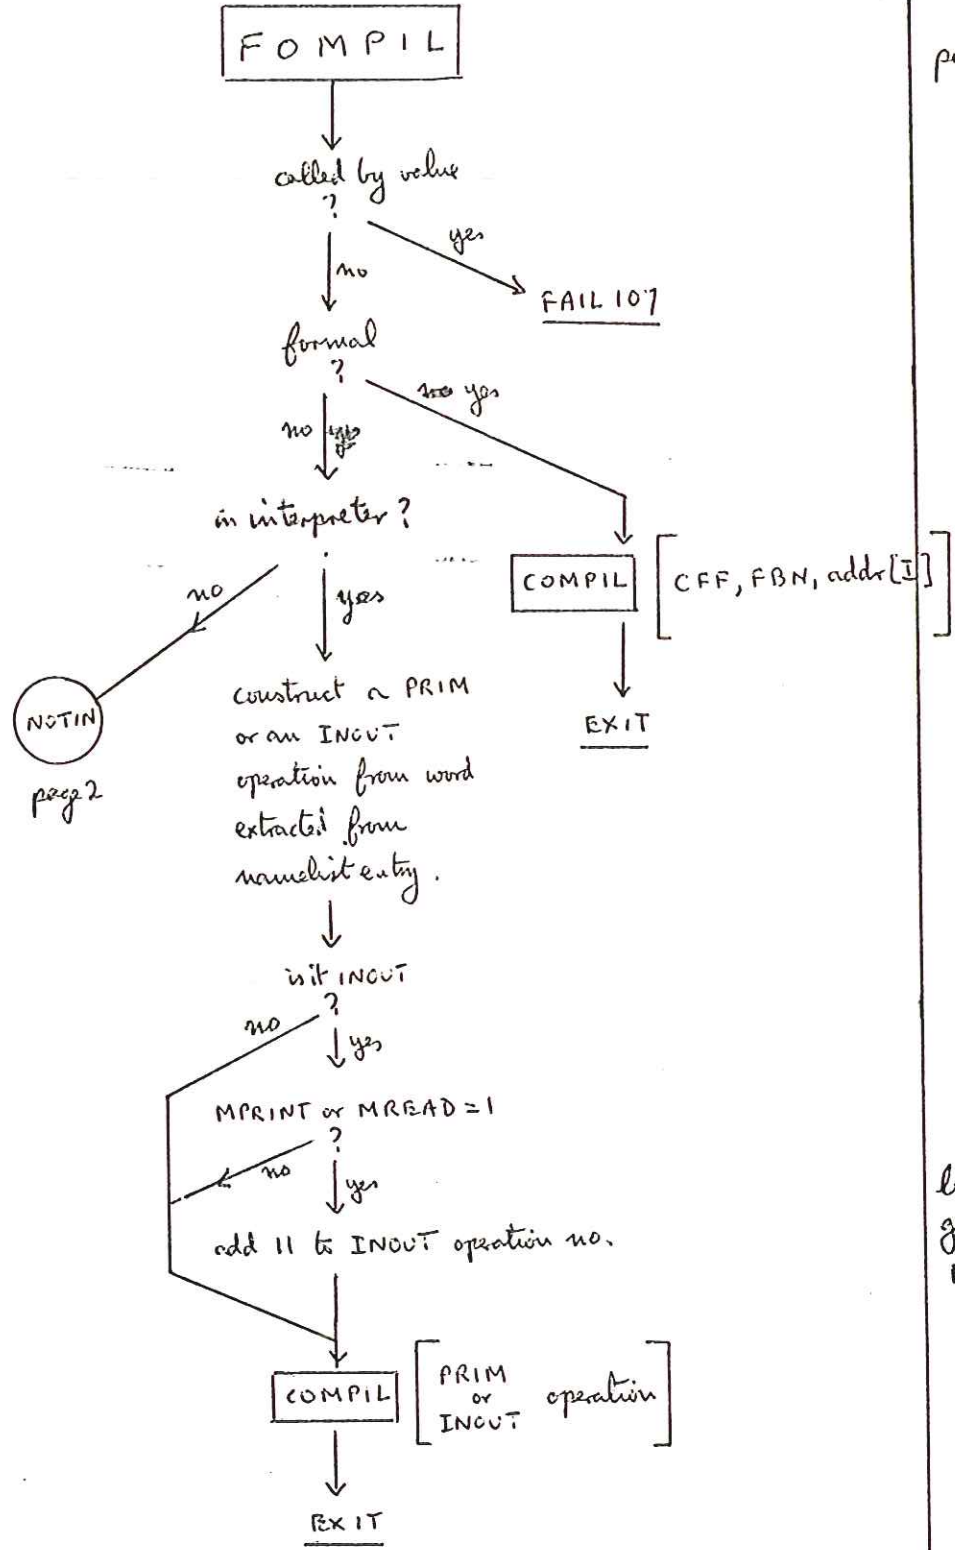 FOMPIL
called by value
?
yes
no
FAIL 107
formal
?
no yes
no
in interpreter?
COMPIL [CFF, FBN, addr[I]]
no
yes
EXIT
NOTIN
page 2
construct a PRIM
or an INOUT
operation from word
extracted from
namelist entry.
is it INOUT
?
no
yes
MPRINT or MREAD = 1
?
no
yes
add 11 to INOUT operation no.
COMPIL [PRIM or INOUT operation]
EXIT